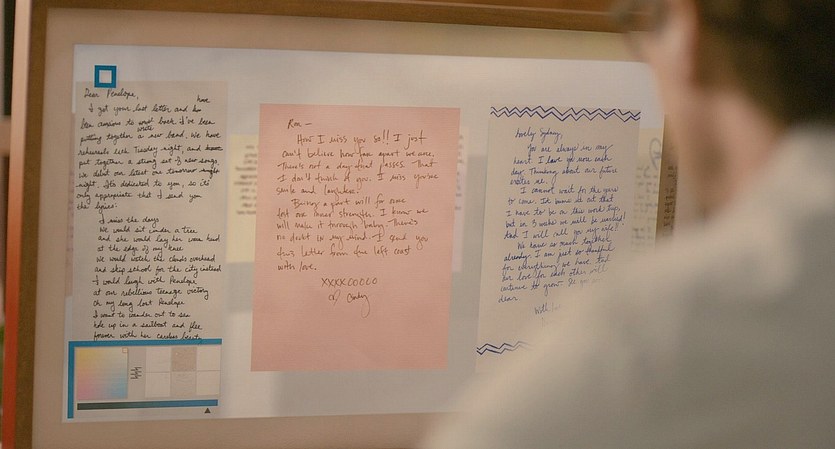 Dear Penelope,
have
I got your last letter and
been anxious to write back I've been
putting together a new band. We have
rehearsals each Tuesday night, and
put together a strong set of new songs,
we debut our latest one tomorrow
night. It's dedicated to you, so it's
only appropriate that I send you
the lyrics:
I miss the days
We would sit under a tree
and she would lay her hand
at the edge of my knee
We would watch the clouds overhead
and skip school for the city instead
I would laugh with Penelope
at our rebellious teenage victory
Oh my long lost Penelope
I want to wander out to sea
hole up in a sailboat and flee
forever with her careless beauty
Roe —
How I miss you so!! I just
can't believe how far apart we are.
There's not a day that passes that
I don't think of you. I miss your
smile and laughter.
Being apart will for some
test our inner strength. I know we
will make it through baby. There's
no doubt in my mind. I send you
this letter from the left coast
with love.
XXXXOOOOO
Lovely Sydney,
You are always in my
heart. I love you more each
day. Thinking about our future
excites me.
I cannot wait for the years
to come. It bums me out that
I have to be on this work trip,
but in 3 weeks we will be married!
And I will call you my wife!
We have so much together
already. I am just so thankful
for everything we have. Let
our love for each other
continue to grow.
dear.
With